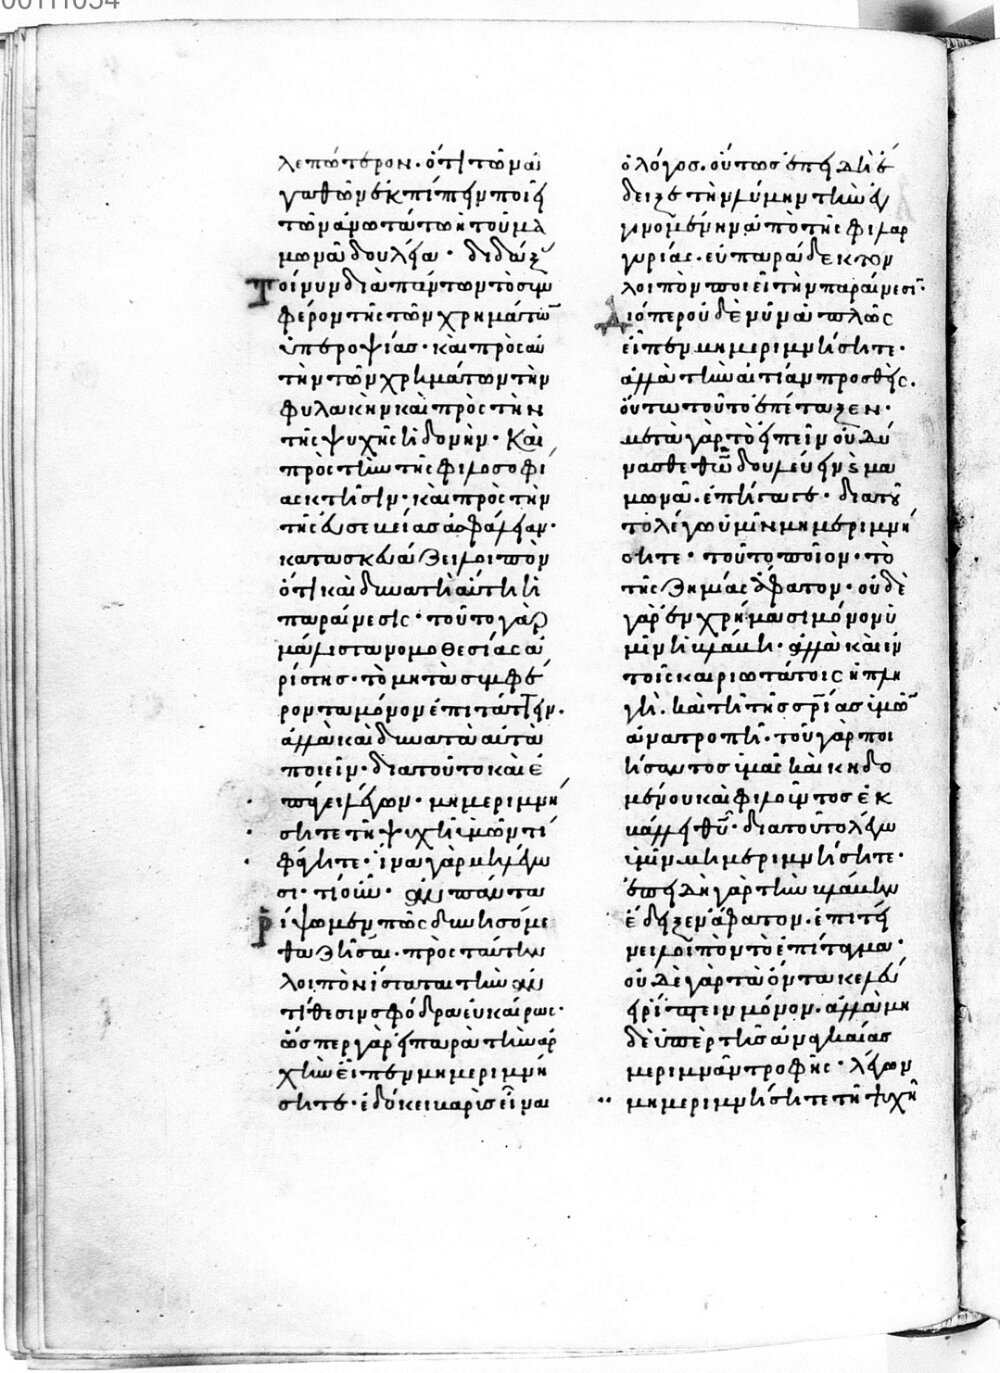 00111054
λεπώτερον· ὅτι τῶν ἀ
γαθῶν ἐκπίπτειν ποιεῖ
τῶν ἀνωτάτω ἡ τοῦ μα
μωνᾶ δουλεία· διδάξας
Τοίνυν διὰ πάντων τὸ συμ
φέρον τῆς τῶν χρημάτων
ὑπεροψίας· καὶ πρὸς αὐ
τὴν τῶν χρημάτων τὴν
φυλακὴν καὶ πρὸς τὴν
τῆς ψυχῆς ἡδονὴν· Καὶ
πρὸς τὴν τῆς φιλοσοφί
ας κτῆσιν· καὶ πρὸς τὴν
τῆς εὐσεβείας ἀσφάλειαν·
κατασκευάζει λοιπὸν
ὅτι καὶ δυνατὴ αὕτη ἡ
παραίνεσις· τοῦτο γὰρ
μάλιστα νομοθεσίας ἀ
ρίστης· τὸ μὴ τὰ συμφέ
ροντα μόνον ἐπιτάττειν·
ἀλλὰ καὶ δυνατὰ αὐτὰ
ποιεῖν· διὰ τοῦτο καὶ ἐ
πάγει λέγων· μὴ μεριμνή
σητε τῆ ψυχῆ ὑμῶν τί
φάγητε· ἵνα γὰρ μὴ λέγω
σι· τί οὖν· ἂν πάντα
ῥίψωμεν πῶς δυνησόμε
θα ζῆσαι· πρὸς ταύτην
λοιπὸν ἵσταται τὴν ἀν
τίθεσιν σφόδρα εὐκαίρως·
ὥσπερ γὰρ εἰ παρὰ τὴν ἀρ
χὴν εἶπεν μὴ μεριμνή
σητε· ἐδόκει βαρὺς εἶναι
ὁ λόγος· οὕτως ἐπειδὴ ἔ
δειξε τὴν λύμην τὴν ἐγ
γινομένην ἀπὸ τῆς φιλαρ
γυρίας· εὐπαράδεκτον
λοιπὸν ποιεῖ τὴν παραίνεσιν·
Διόπερ οὐδὲ νῦν ἁπλῶς
εἶπεν μὴ μεριμνήσητε·
ἀλλὰ τὴν αἰτίαν προσθεὶς·
οὕτω τοῦτο ἐπέταξεν·
μετὰ γὰρ τὸ εἰπεῖν οὐ δύ
νασθε θῶ δουλεύειν καὶ μα
μωνᾶ· ἐπήγαγε· διὰ τοῦ
το λέγω ὑμῖν μὴ μεριμνή
σητε· τοῦτο ποῖον· τὸ
τῆς ζημίας ἄφατον· οὐδὲ
γὰρ ἐν χρήμασι μόνον ὑ
μῖν ἡ βλάβη· ἀλλὰ καὶ ἐν
τοῖς καιριωτάτοις ἡ πλη
γὴ· καὶ τῆ τῆς σρίας ὑμῶν
ἀνατροπῆ· τοῦ γὰρ ποι
ήσαντος ὑμᾶς καὶ κηδο
μένου καὶ φιλοῦντος ἐκ
βάλλει θῦ· διὰ τοῦτο λέγω
ὑμῖν μὴ μεριμνήσητε·
ἐπειδὴ γὰρ τὴν βλάβην
ἔδειξεν ἄφατον· ἐπιτεί
νει λοιπὸν τὸ ἐπίταγμα·
οὐδὲ γὰρ τὰ ὄντα κελεύ
ει ῥίπτειν μόνον· ἀλλὰ μη
δὲ ὑπὲρ τῆς ἀναγκαίας
μεριμνᾶν τροφῆς· λέγων
μὴ μεριμνήσητε τῆ ψυχῆ